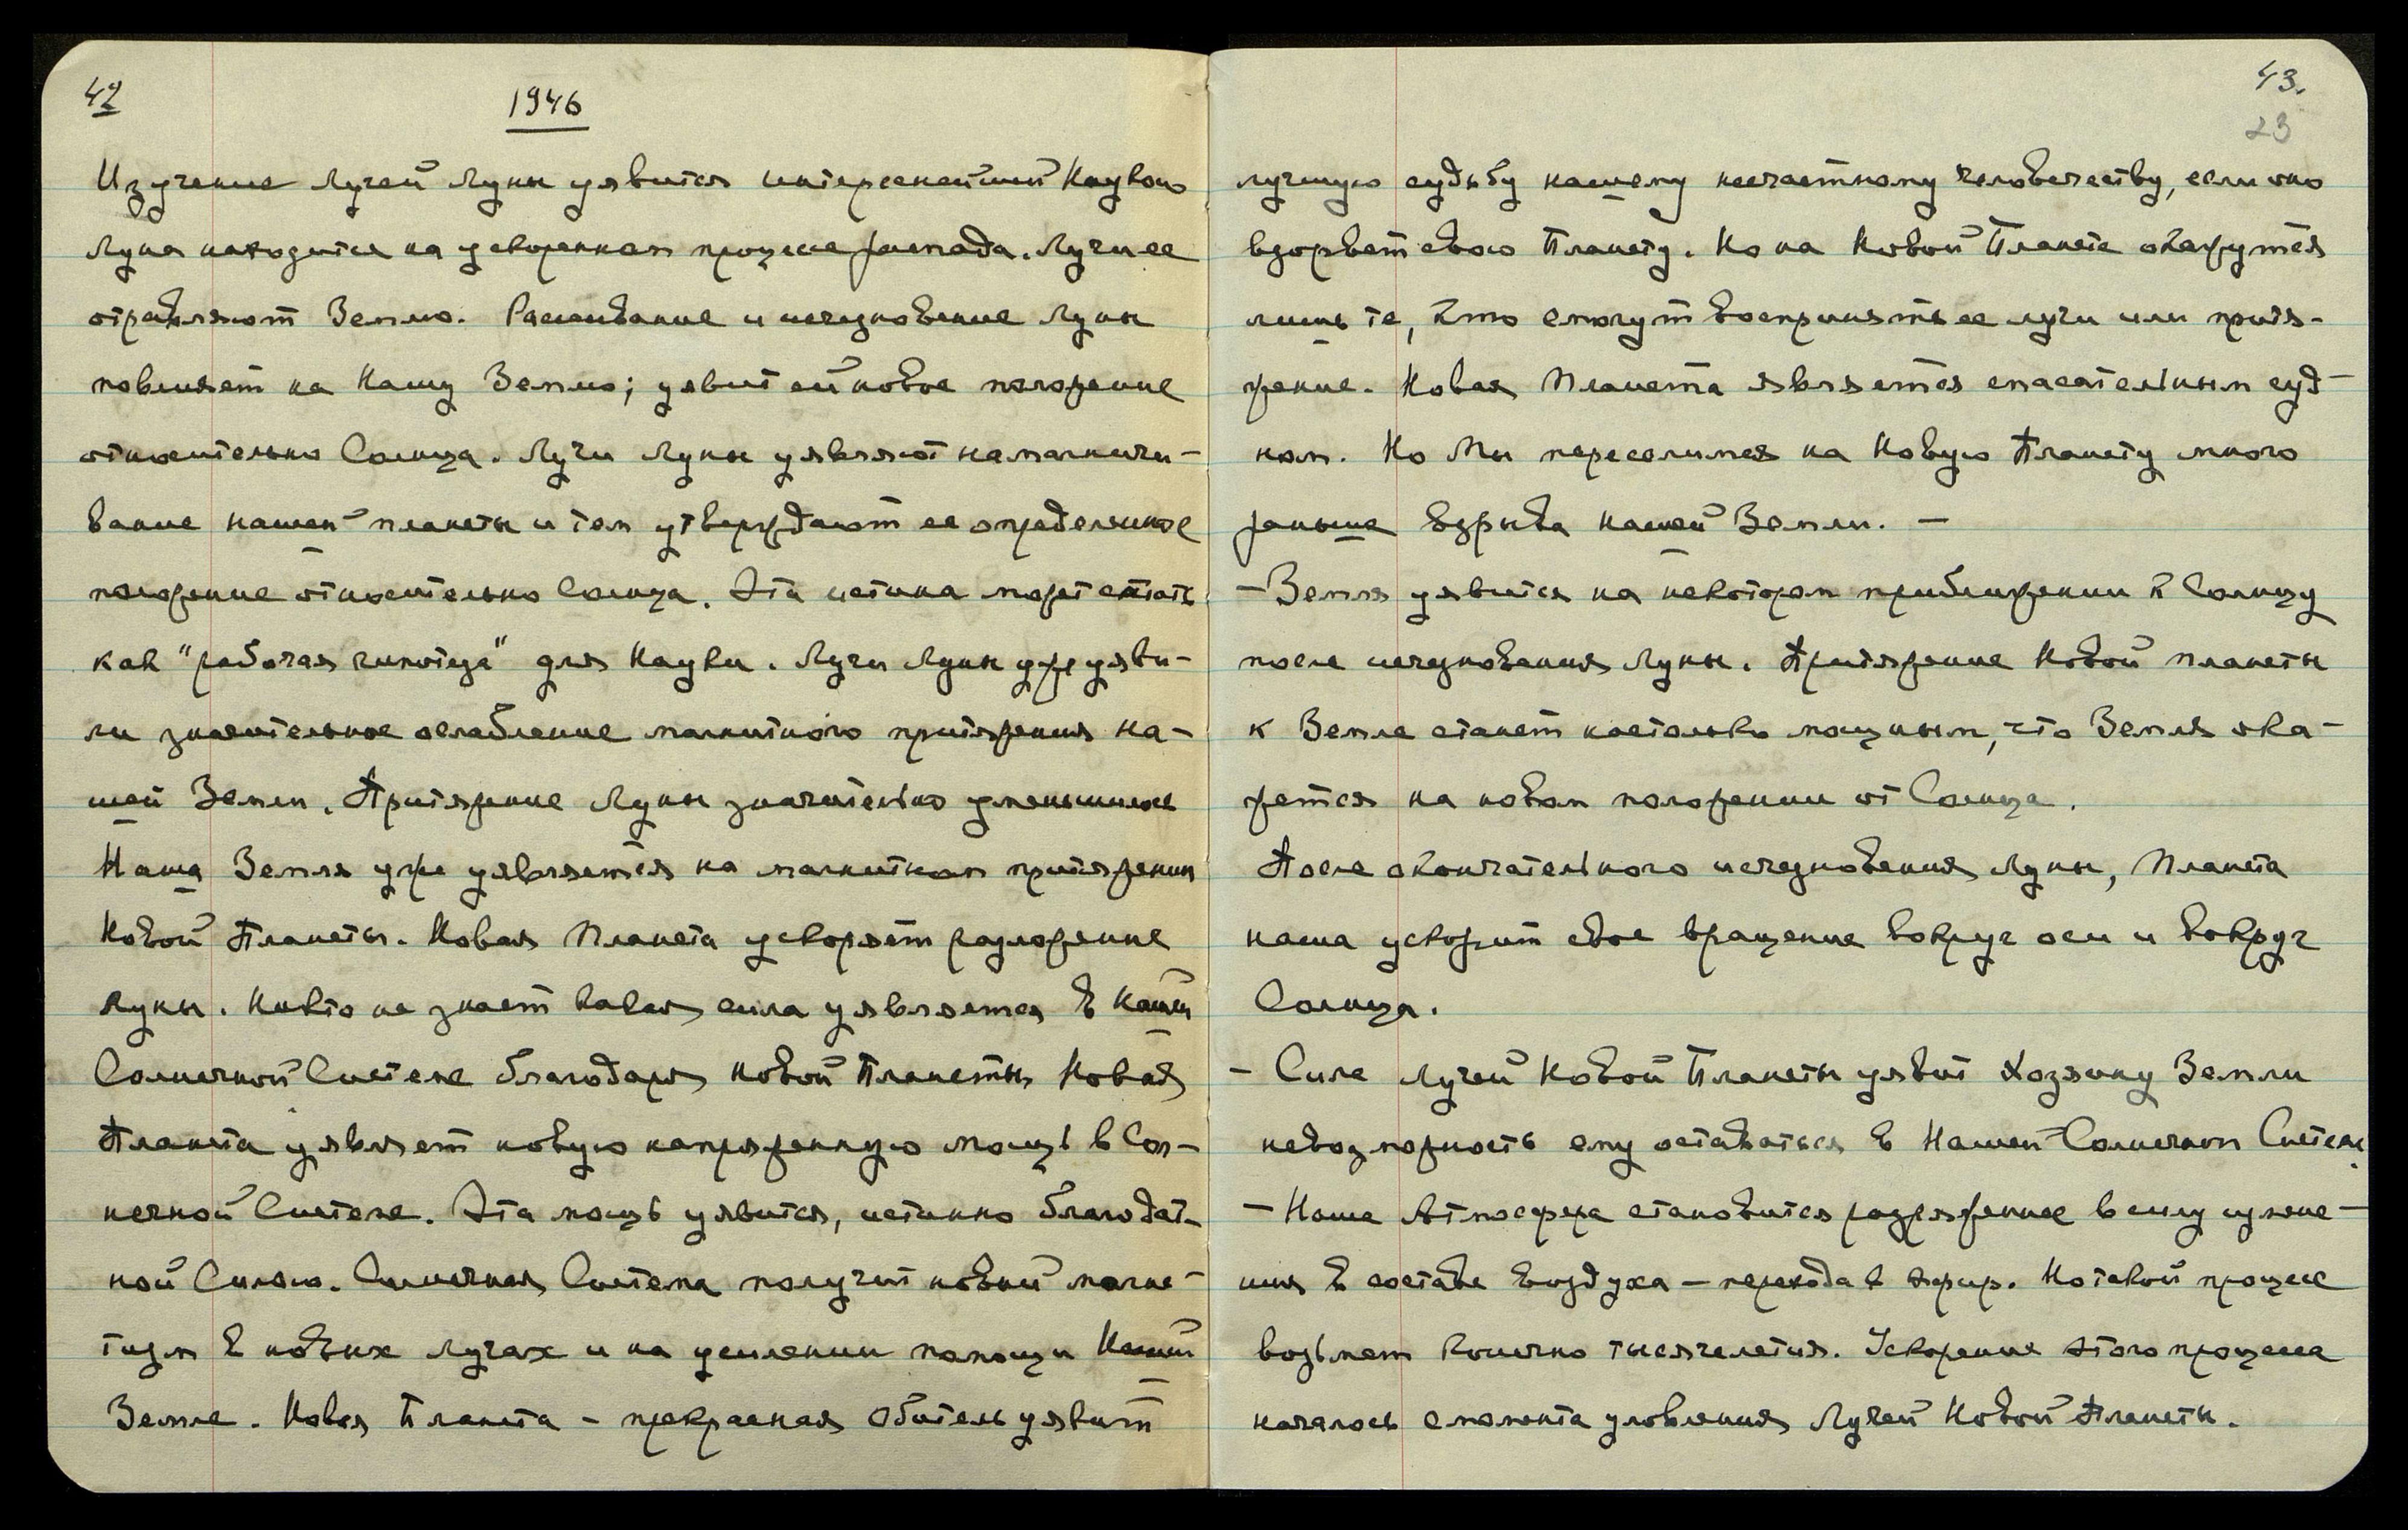 42
1946
Изучение Лучей Луны уявится интереснейшей Наукою
Луна находится на ускоренном процессе распада. Лучи ее
отравляют Землю. Рассеивание и исчезновение Луны
повлияет на Нашу Землю; уявит ей новое положение
относительно Солнца. Лучи Луны уявляют намагничи-
вание нашей планеты и тем утверждают ее определенное
положение относительно Солнца. Эта истина может стать
как "рабочая гипотеза" для Науки. Лучи Луны уже уяви-
ли значительное ослабление магнитного притяжения на-
шей Земли. Притяжение Луны значительно уменьшилось
Наша Земля уже уявляется на магнитном притяжении
Новой Планеты. Новая Планета ускоряет разложение
Луны. Никто не знает какая сила уявляется в Нашей
Солнечной Системе благодаря новой Планеты. Новая
Планета уявляет новую напряженную мощь в Сол-
нечной Системе. Эта мощь уявится, истинно благодат-
ной Силою. Солнечная Система получит новый магне-
тизм в новых лучах и на усилении помощи Нашей
Земле. Новая Планета - прекрасная Обитель уявит
43.
23
лучшую судьбу нашему несчастному человечеству, если оно
взорвет свою Планету. Но на Новой Планете окажутся
лишь те, кто смогут воспринять ее лучи или притя-
жение. Новая Планета является спасательным суд-
ном. Но Мы переселимся на Новую Планету много
раньше взрыва нашей Земли. —
- Земля уявится на некотором приближении к Солнцу
после исчезновения Луны. Притяжение Новой планеты
к Земле станет настолько мощным, что Земля ока-
жется на новом положении от Солнца.
После окончательного исчезновения Луны, Планета
наша ускорит свое вращение вокруг оси и вокруг
Солнца.
- Сила лучей Новой Планеты уявит Хозяину Земли
невозможность ему оставаться в Нашей Солнечной Системе.
- Наша Атмосфера становится разряженнее в силу измене-
ния в составе воздуха — перехода в эфир. Но такой процесс
возьмет конечно тысячелетия. Ускорение этого процесса
началось с момента уловления Лучей Новой Планеты.